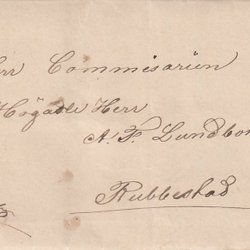 rr Commissarien
Högädle Herr
A. F. Lundbo
Rubbestad